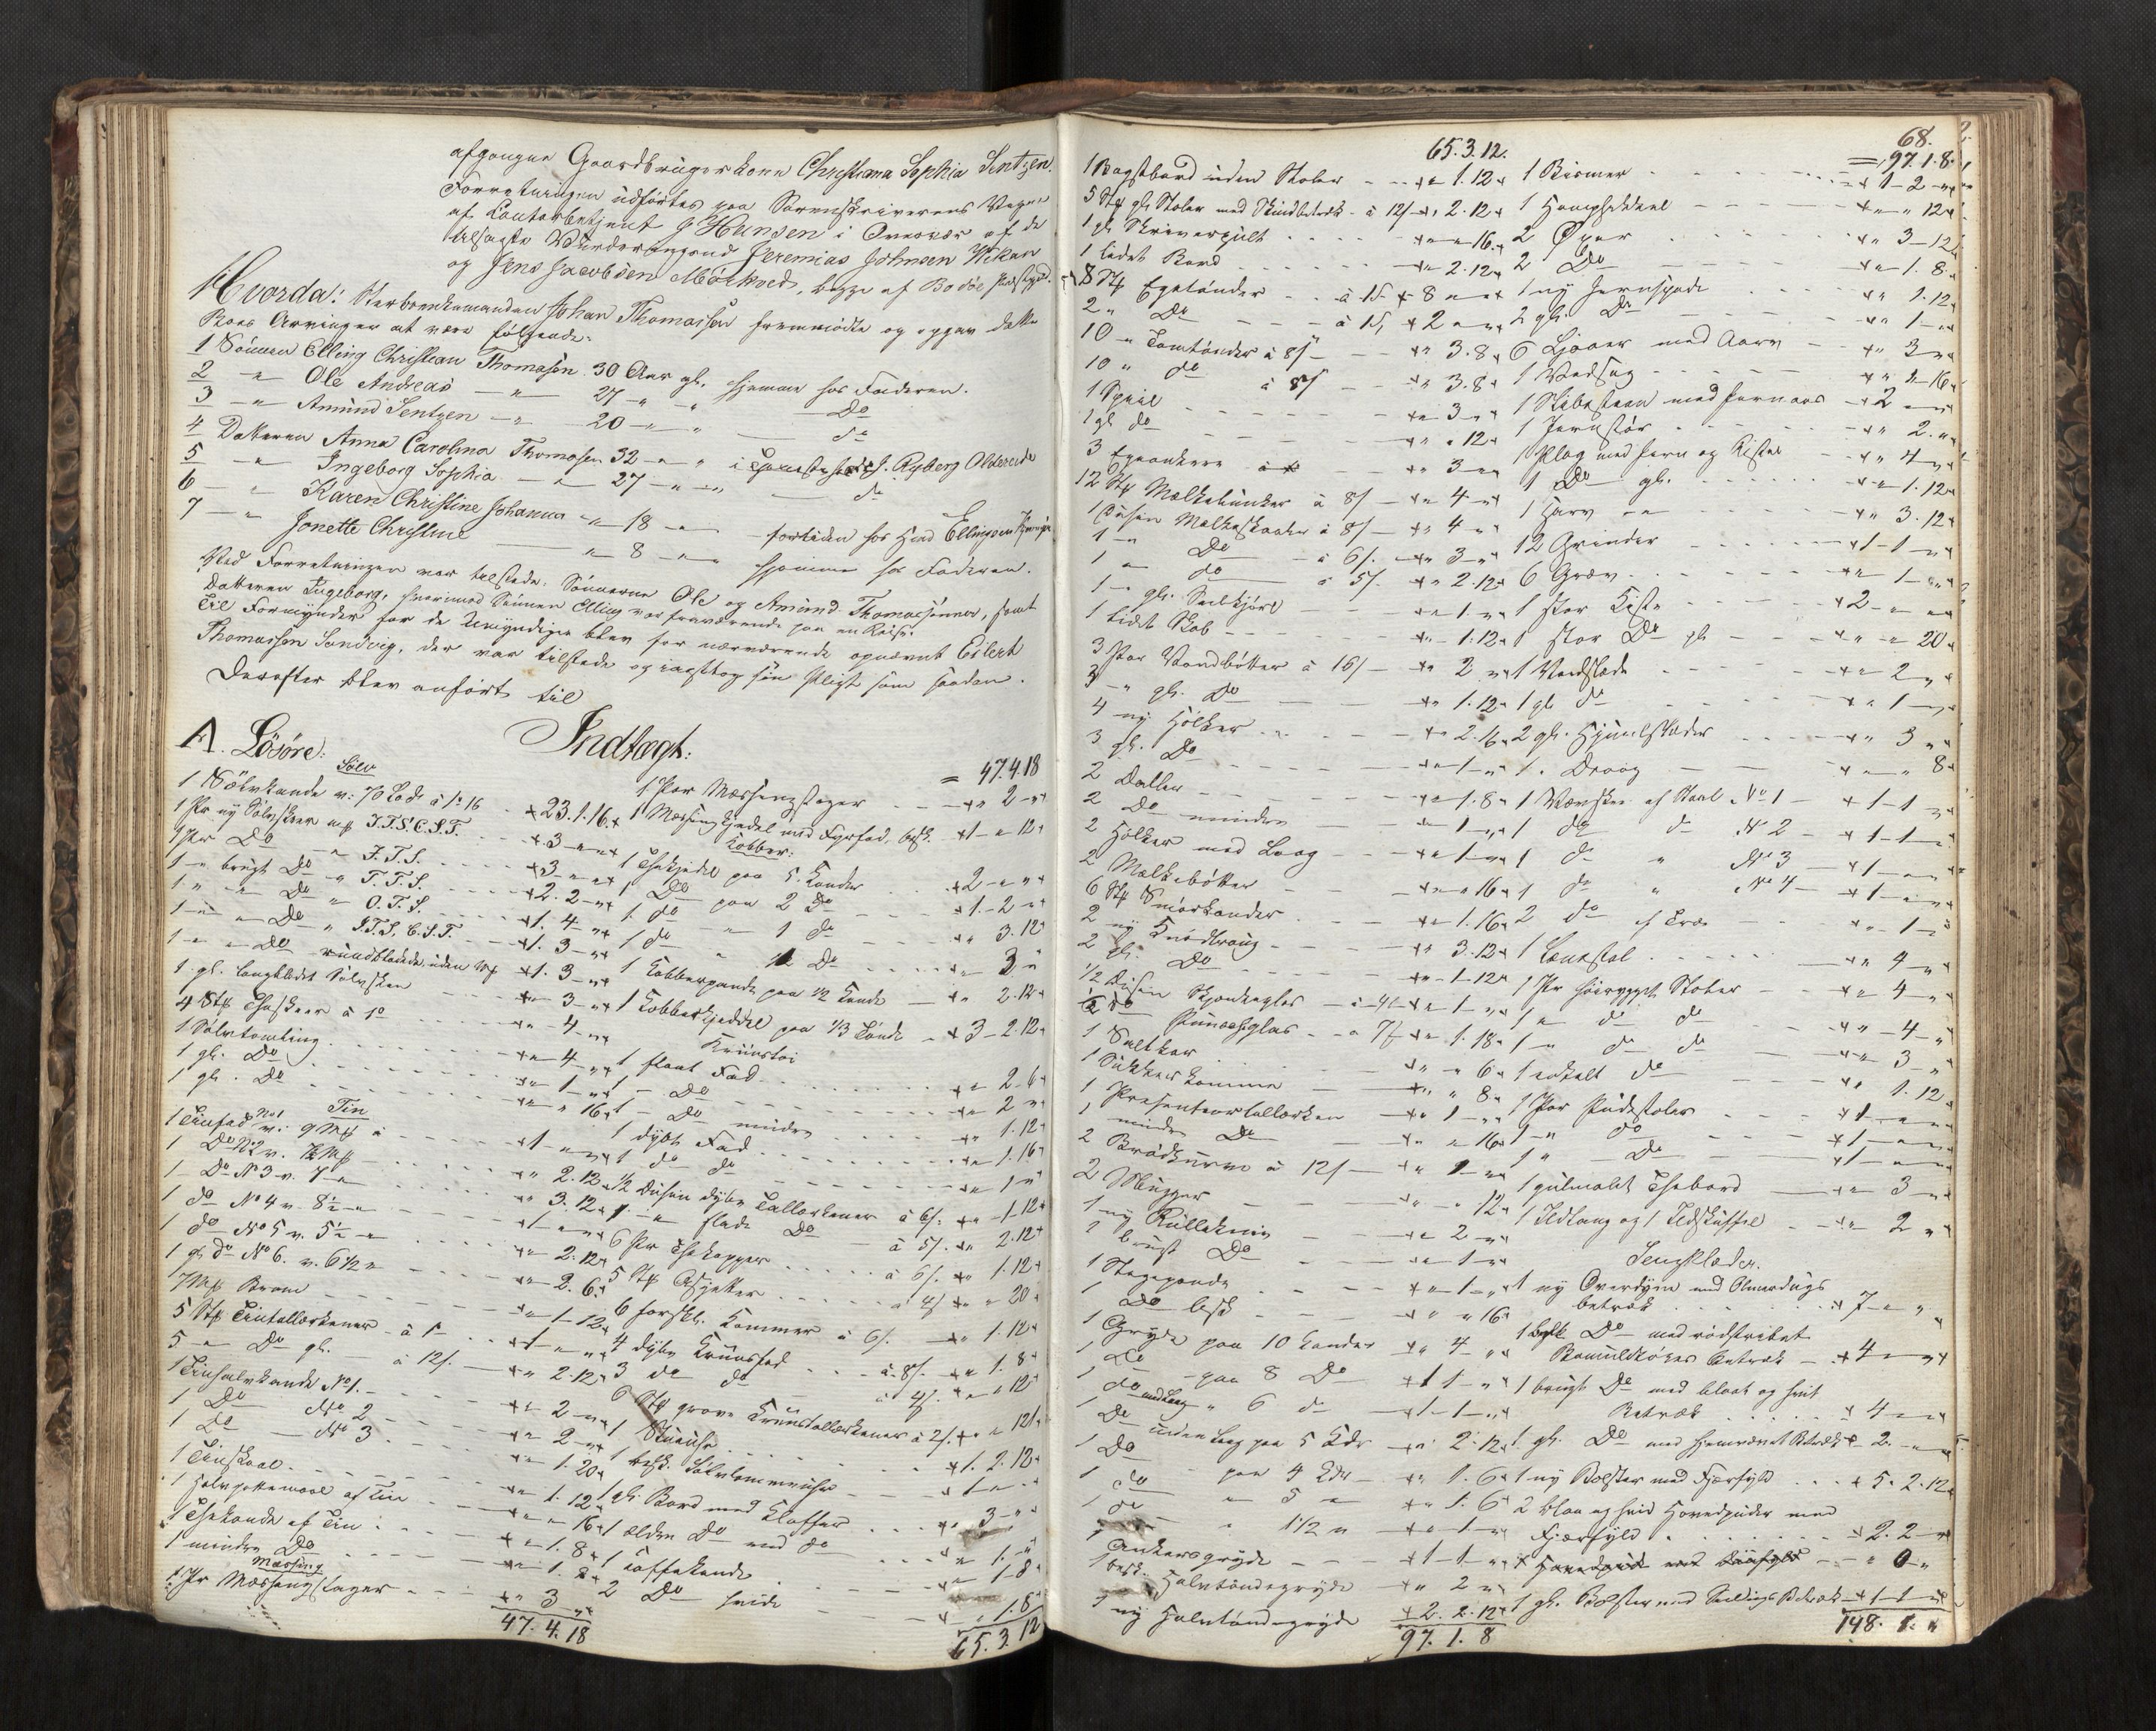 afgangne Gaardbrugerkone Christiana Sophia Jentzen.
Forretningen udførtes paa Sorenskriverens Vegne
af Contorbetjent J Hansen i Overvær af de
tilsagte Vurderingsmænd Jeremias Johnsen Vikan
og Jens Jacobsen Mörkved, begge af Bodöe Præstegjd.
Hvorda: Sterboenkemanden Johan Thomassen fremmödte og opgav dette
Boes Arvinger at være følgende:
1 Sönnen Elling Christian Thomasen 30 Aar gl. hjemme hos Faderen.
2 " Ole Andreas — " 27 " " Do
3 " Amund Jentzen " 20 " " do
4 Datteren Anna Carolina Thomasen 32 " " i Ryberg
5 " Ingeborg Sophia " 27 " " do
6 " Karen Christine Johanna " 18 " fortiden hos Hnd Ellingsen
7 " Jonette Christine " 8 " hjemme hos Faderen.
Ved Forretningen var tilstede: Sönnerne Ole og Amund Thomassönner, samt
Datteren Ingeborg, hvorimod Sönnen Elling var fraværende paa en Reise.
Til Formynder for de Umyndige blev for nærværende opnævnt Eilert
Thomassen Sandvig, der var tilstede og modtog sin Pligt som saadan.
Derefter blev anfört til
Indtægt:
A. Lösöre:
Sölv
1 Sölvkande v: 70 Lod à 1. 16 23. 1. 16.
1 Pr ny Sölvskeer mrk J.T.S. C.S.T. 3 " "
1 Pr Do " J.T.S. 3 " "
1 " brugt Do " T.T.S. 2. 2 "
1 " " Do " O.T.S. 1. 4 "
1 " " Do " J.T.S. C.S.T. 1. 3 "
1 " " Do rundbladede, uden Mrk 1. 3 "
1 gl. langbladet Sölvskee " 3 "
4 Stk Theskeer à 1 " 4 "
1 Sölvtomling " 4 "
1 gl. Do " 1 "
1 gl. Do " " 16
Tin
1 Tinfad No 1 v: 9 Mk 1 " "
1 Do No 2 v. Mk " 2. 12
1 Do No 3 v. 7 " " 3. 12
1 do No 4 v. 8½ " 1 " "
1 do No 5 v. 5½ " " 2. 12
1 gl do No 6. v. 6½ " " 2. 6
7 Mk " 1 12
5 Stk Tintallerkener à 1 1 " "
5 " Do gl. à 12/ " 2. 12
1 No 1. " 2 "
1 Do No 2 " 2 "
1 do No 3 " 1. 20
1 Tinskaal " 1. 12
1 Halvpottemaal af Tin " " 16
1 Thekande af Tin " 1. 8
1 mindre Do " 1. 8
Mæssing
1 Pr Mæssingstager " 3 "
47. 4. 18
= 47.4.18
1 Par Mæssingstager " 2 "
1 Mæssingkjedel med Fyrfad, besk. 1 " 12
Kobber:
1 Thekjedel paa 5 Kander 2 " "
1 Do paa 2 Do 1. 2 "
1 do " 1 do " 3. 12
1 do " ½ Do " 3 "
1 Kobberpande paa ½ Kande " 2. 12
1 Kobberkjeddel paa 1/3 Tönde 3. 2. 12
Kruustøi
1 fladt Fad " 2. 6
1 Do " 2 "
1 Do mindre " 1. 12
1 dybt Fad " 1. 16
1 do do " 1 "
½ Dusin dybe Tallerkener à 6/ " 1. 12
1 " flade Do à 5/. " 2. 12
6 Par Thekopper à 6/. " 1. 12
5 Stk Asjetter à 4/ " " 20
6 forskl. Kommer à 6/. " 1. 12
4 dybe Kruusfad à 8/. " 1. 8
3 do do à 4/. " " 12
6 Stk grove Kruustallerkener à 2/. " " 12
1 Stueuhr 1. 2. 12
1 besk. Sölvlommeuhr 1 " "
1 gl. Bord med Klaffer " 3 "
1 ældre Do med do " 1. "
1 Kaffekande " 1 8
2 Do hvide " 1. 8
65. 3. 12
65. 3. 12.
1 Bagstbord uden Stoler " 1. 12
5 Stk gl. Stoler med Skindbetræk à 12/ " 2. 12
1 gl Skriverpult " " 16
1 lidet Bord " 2. 12
8 Stk Egetönder à 1 8 " "
2 " Do à 2 " "
10 " Tomtönder à 8/ " 3. 8
10 " do à 8/ " 3. 8
1 " 3 "
1 gl do " " 12
3 " 3 "
12 Stk Melkebunker à 8/ " 4 "
1 Dusin Melkeskaaler à 8/ " 4 "
1 " Do à 6/. " 3 "
1 " do à 5/. " 2. 12
1 " gl. " 1 "
1 lidt Skab " 1. 12
3 Par Vandbötter à 16/ " 2 "
3 " gl. Do " 1. 12
4 ny Holker " 2. 16
3 gl. Do " 1 "
2 Daller " 1. 8
2 Do mindre " 1 "
2 Holker med Laag " 1 "
2 Melkebötter " " 16
6 Stk Smörkander " 1. 16
2 ny Brödtraug " 3. 12
2 gl. Do " 1. 12
½ Dusin à 4/ " 1 "
½ Do Punschglas à 7/ " 1. 18
1 Saltkar " " 6
1 Sukkerkomme " " 8
1 Presenteertallerken " 1 "
1 mindre Do " " 16
2 Brödkurve à 12/ " 1 "
2 Mugger " " 12
1 ny Rullekniv " 2 "
1 brugt Do " 1 "
1 Stegepande " 1 "
1 Do besk " " 16
1 Gryde paa 10 Kander " 4 "
1 Do paa 8 Do 1 1 "
1 do med Laag " 6 do 1 1 "
1 Do uden Laag paa 5 Kdr " 2. 12
1 Do paa 4 Kdr " 1. 6
1 do " 5 " " 1. 6
1 do " 1½ " " 1 "
1 Ankersgryde 1 1 "
1 besk. Halvtöndegryde " 2 "
1 ny Halvtöndegryde 2. 2. 12
97. 1. 8
68.
= 97. 1. 8.
1 Bismer 1 2 "
1 " " 12
2 Öxer " 3 12
2 Do " 1. 8
1 ny Jernspade " 1. 12
2 gl. Do " 1 "
6 Ljaaer med Aarv " 3 "
1 Vedsag " 1 16
1 Slibesteen med Jernaas 2 " "
1 Jernstör " 2. "
1 Plog med Jern og Ristel " 4 "
1 Do gl. " 1. 12
1 Harv " 3. 12
12 Grinder 1 1 "
6 Grev " 1 "
1 stor Kiste 2 " "
1 stor Do gl " " 20
1 Vedslæde " 2 "
1 gl do " 1 "
2 gl. Hjuulslæder " 3 "
1 " Draag " " 8
1 Vævskee af Staal No 1 1 1 "
1 do do No 2 1 1 "
1 do " No 3 1 " "
1 do " No 4 1 " "
2 do af Træ " 1 "
1 Lænestol " 4 "
1 Pr höirygget Stoler " 4 "
1 " do do " 4 "
1 " do do " 3 "
1 enkelt do " 1. 12
1 Par Pudestoler 1 " "
1 " do 1 " "
1 " Do 1 " "
1 guulmalet Thebord " 3 "
1 Ildtang og 1 Ildskuffel " 2 "
Sengklæder.
1 ny Overdyne med Olmerdugs
betræk 7 " "
1 besk Do med rödstribet
Bomuldtöies Betræk 4 " "
1 brugt Do med blaat og hvit
Betræk 4 " "
1 gl. Do med hjemvævet Betræk 2 " "
1 ny Bolster med Fjærfyld 5. 2. 12
2 blaa og hvid Hovedpuder med
Fjærfyld 2. 2 "
1 Hovedpude med " 0 "
1 gl. Bolster med Betræk 1 1 "
148. 1. "